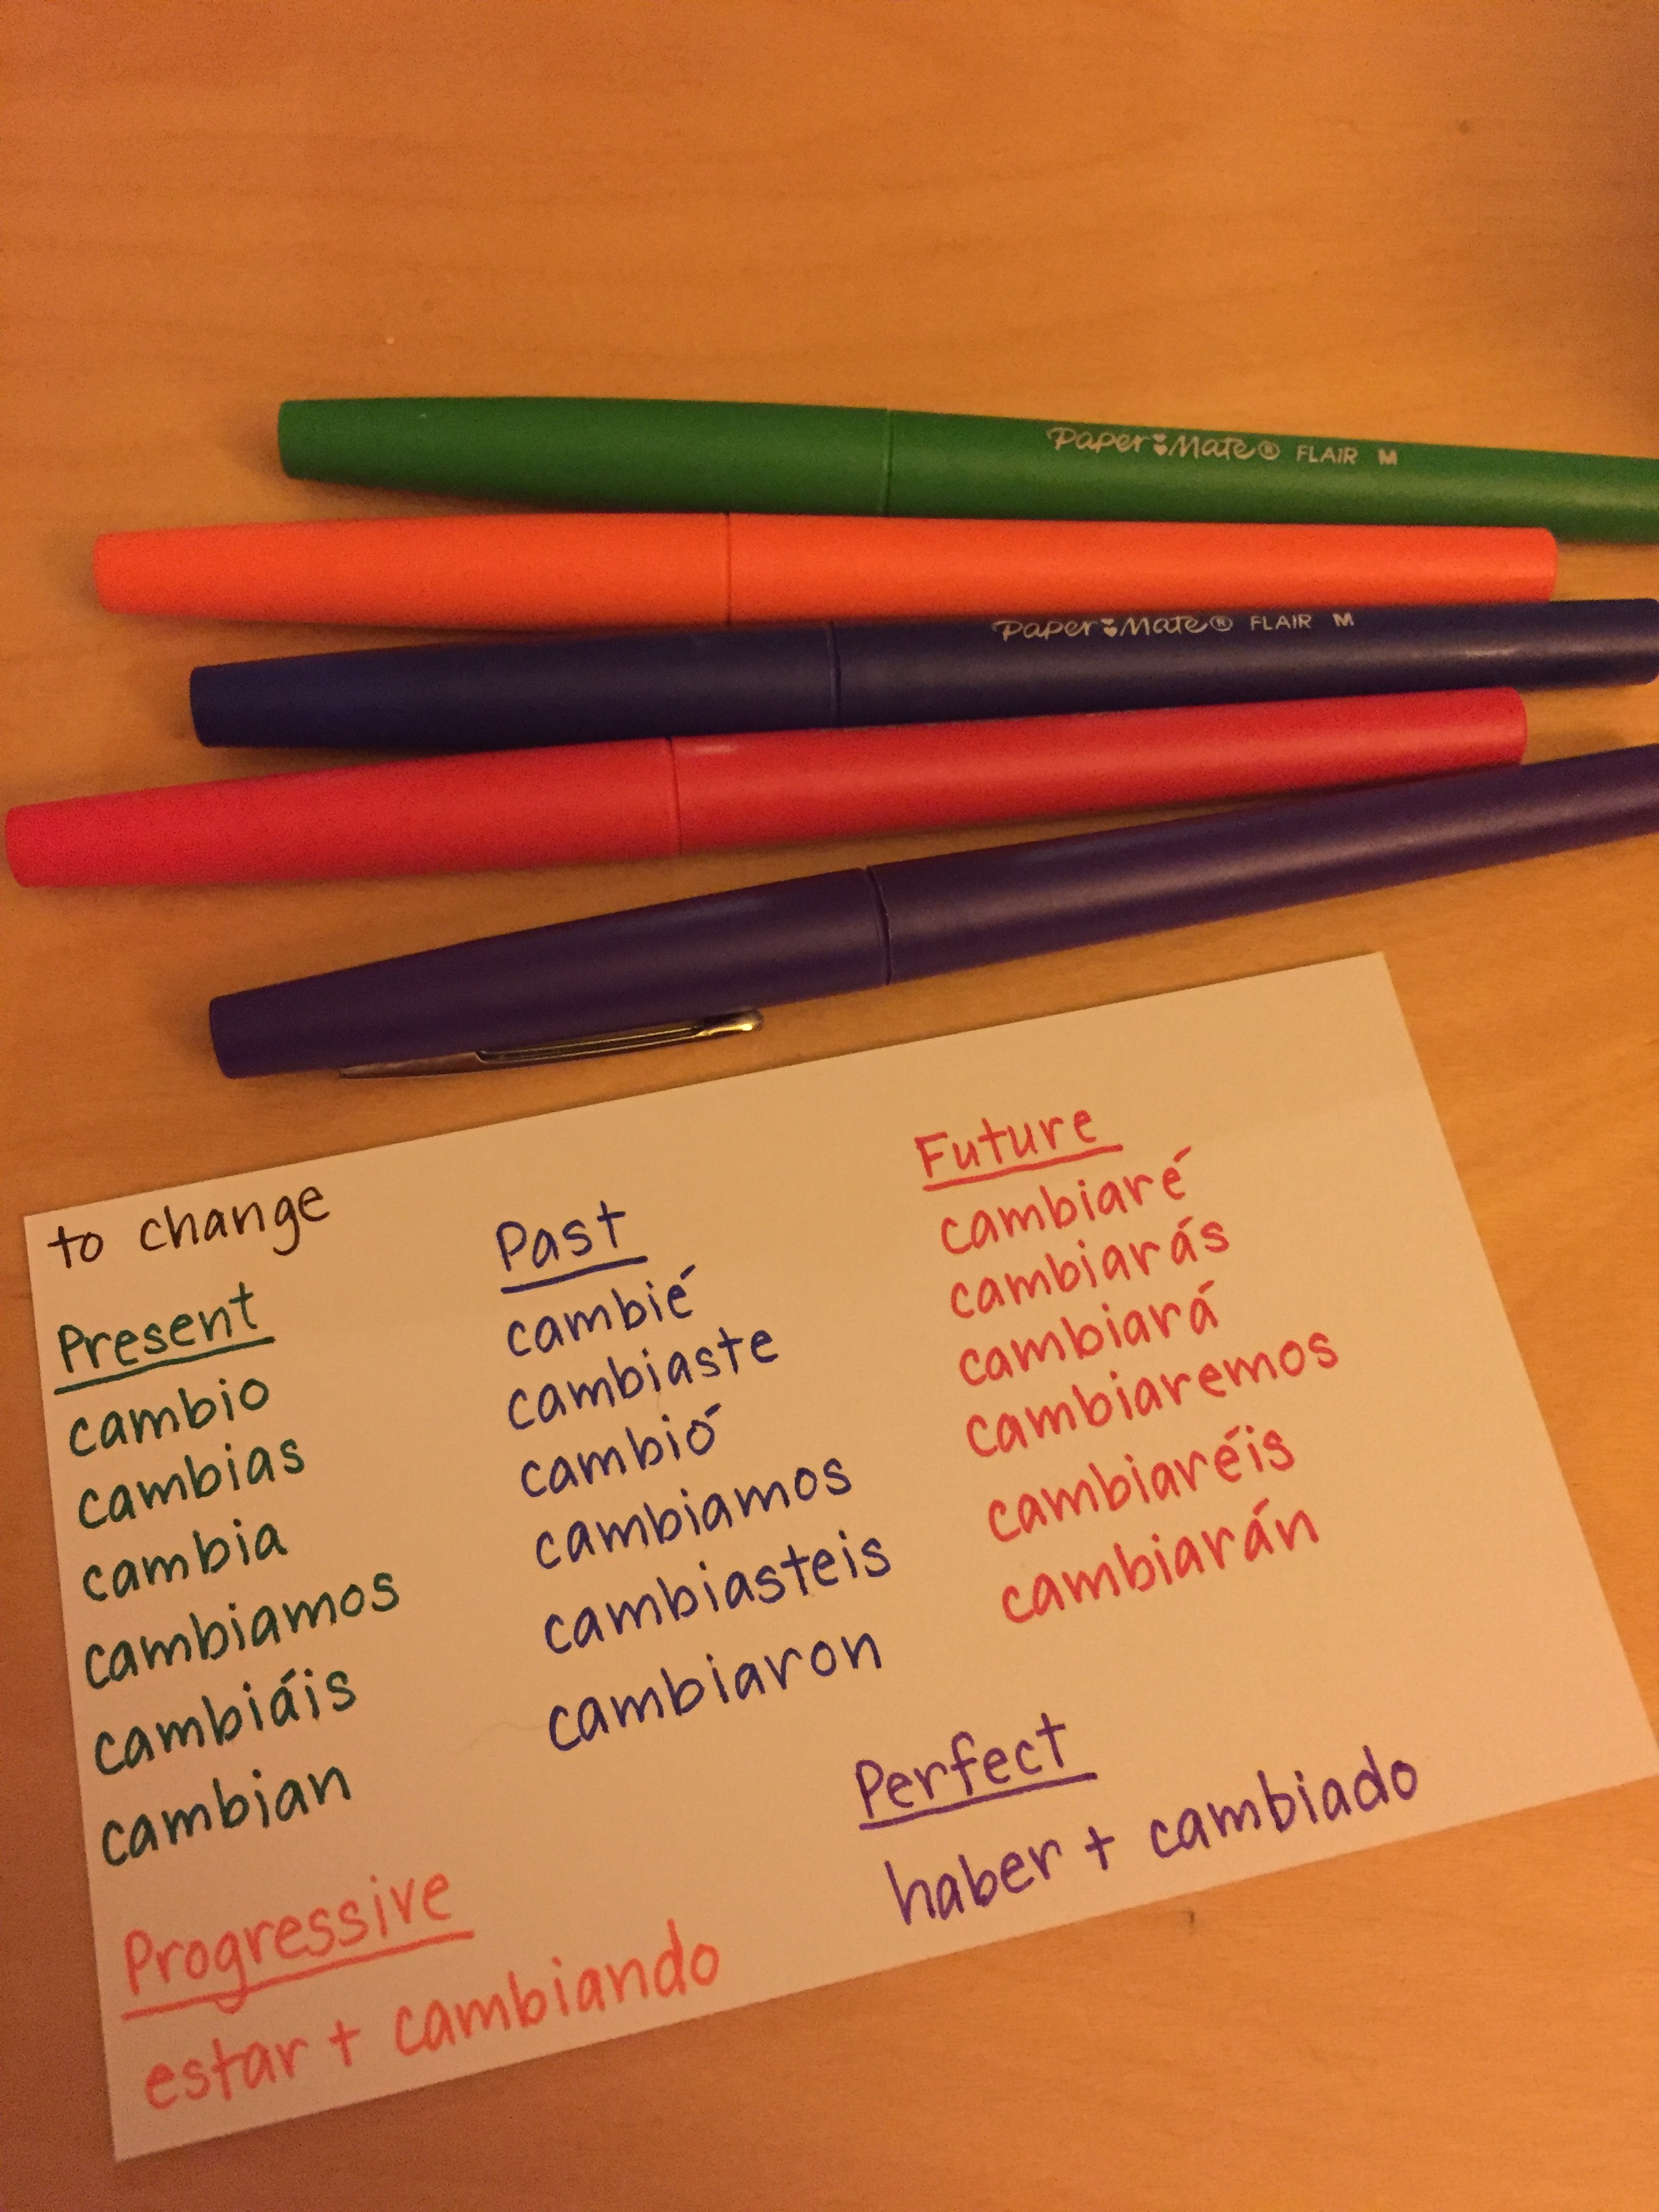 Paper Mate® FLAIR M
Paper Mate® FLAIR M
to change
Present
cambio
cambias
cambia
cambiamos
cambiáis
cambian
Past
cambié
cambiaste
cambió
cambiamos
cambiasteis
cambiaron
Future
cambiaré
cambiarás
cambiará
cambiaremos
cambiaréis
cambiarán
Progressive
estar + cambiando
Perfect
haber + cambiado